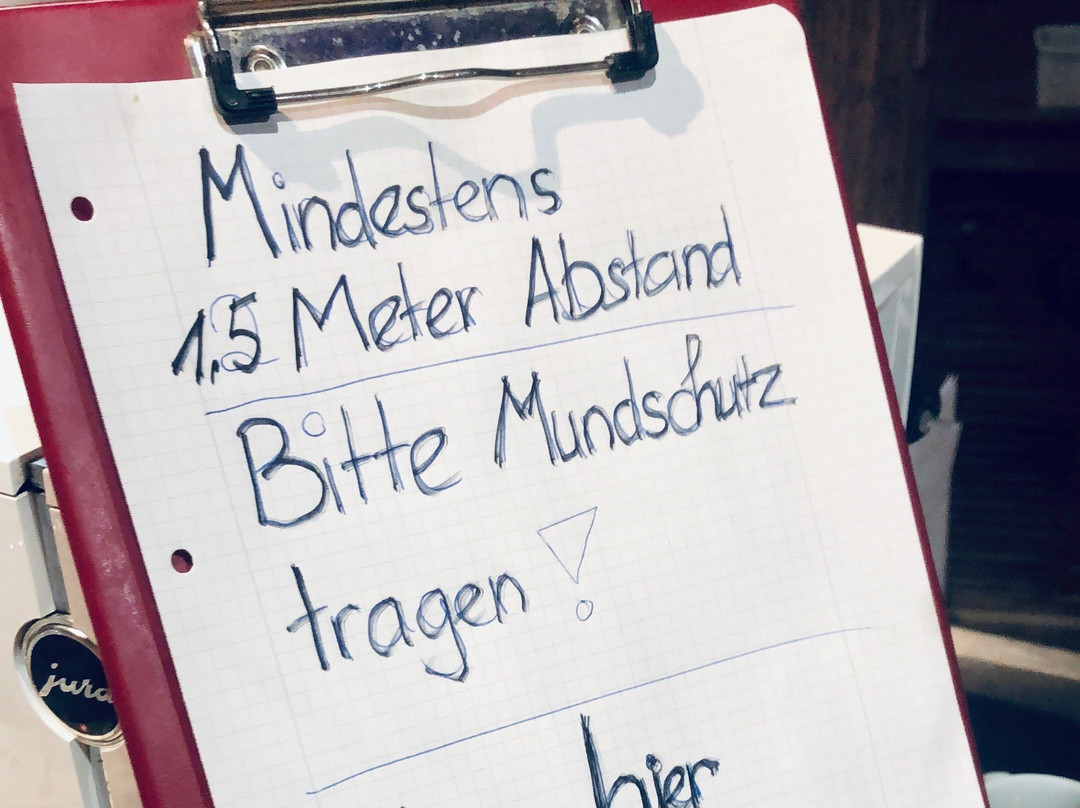 Mindestens
1,5 Meter Abstand
Bitte Mundschutz
tragen!
hier
jura